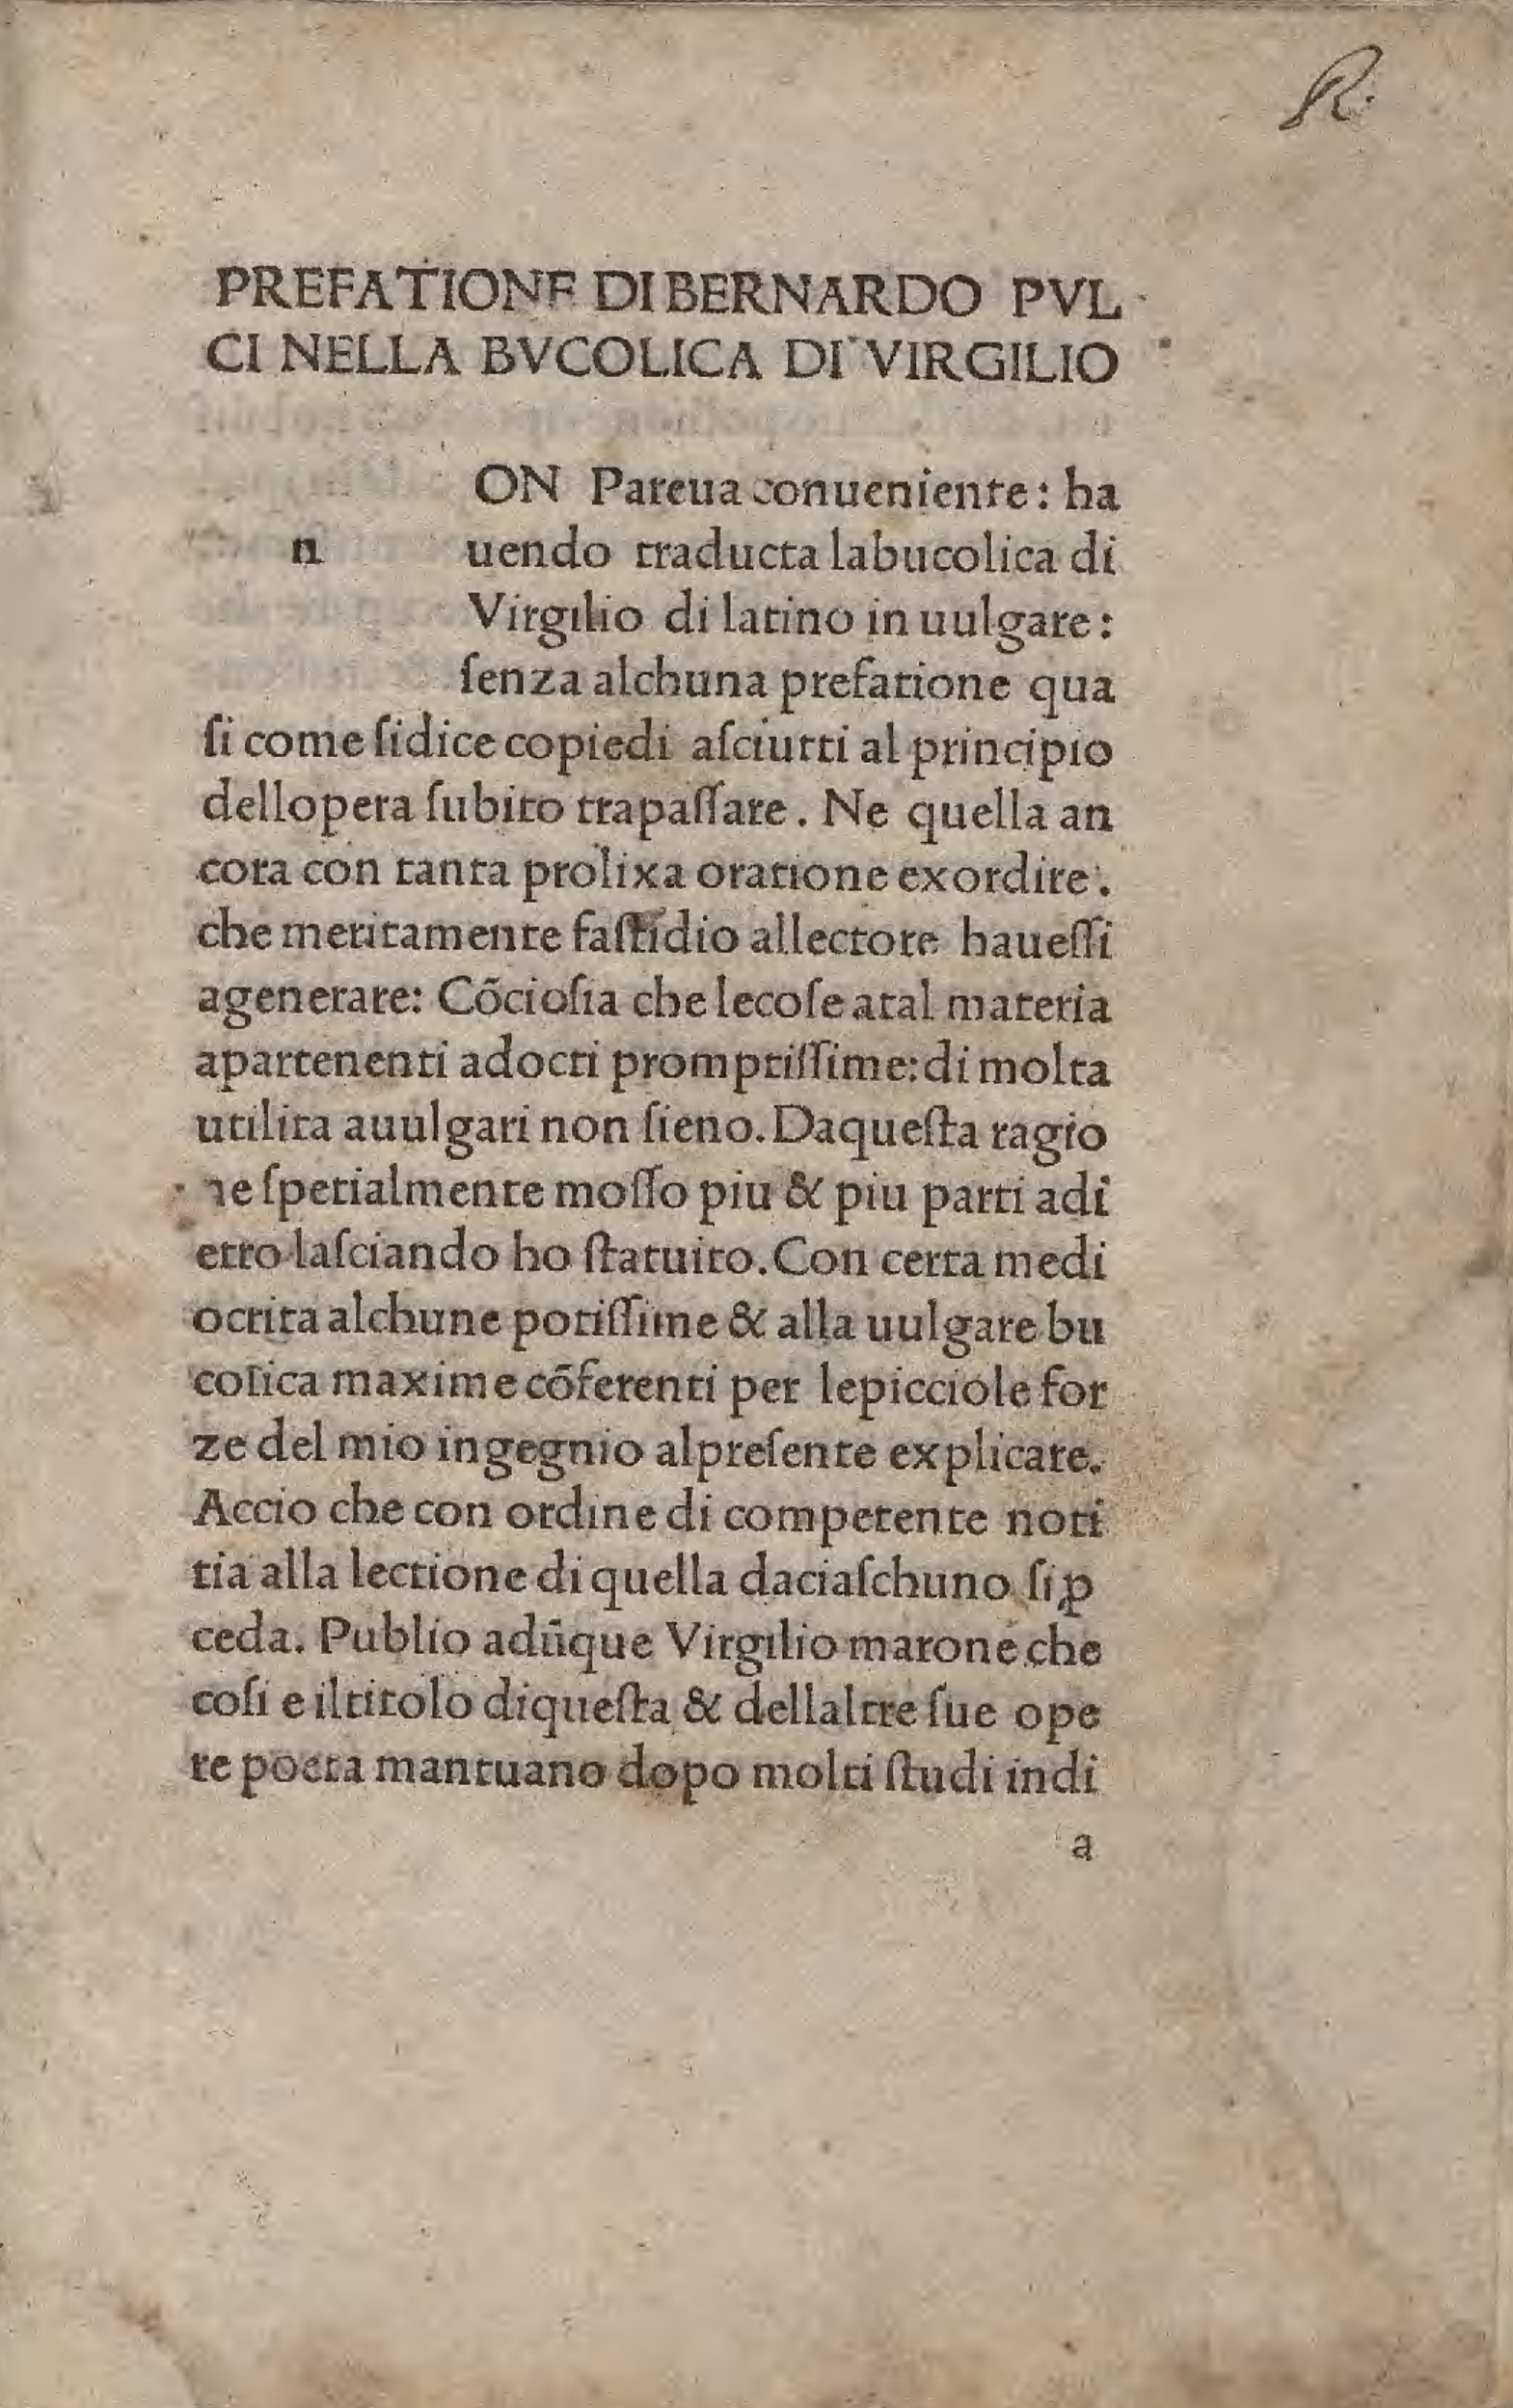 R.
PREFATIONE DI BERNARDO PVL
CI NELLA BVCOLICA DI VIRGILIO
ON Pareua conueniente: ha
n uendo traducta labucolica di
Virgilio di latino in uulgare:
ſenza alchuna prefatione qua
ſi come ſidice copiedi aſciutti al principio
dellopera ſubito trapaſſare. Ne quella an
cora con tanta prolixa oratione exordire.
che meritamente faſtidio allectore haueſſi
agenerare: Cōcioſia che lecoſe atal materia
apartenenti adocti promptiſſime: di molta
utilita auulgari non ſieno. Daqueſta ragio
ne ſpetialmente moſſo piu & piu parti adi
etro laſciando ho ſtatuito. Con certa medi
ocrita alchune potiſſime & alla uulgare bu
colica maxime cōferenti per lepicciole for
ze del mio ingegnio alpreſente explicare.
Accio che con ordine di competente noti
tia alla lectione di quella daciaſchuno ſi ꝓ
ceda. Publio adūque Virgilio marone che
coſi e iltitolo diqueſta & dellaltre ſue ope
re poeta mantuano dopo molti ſtudi indi
a